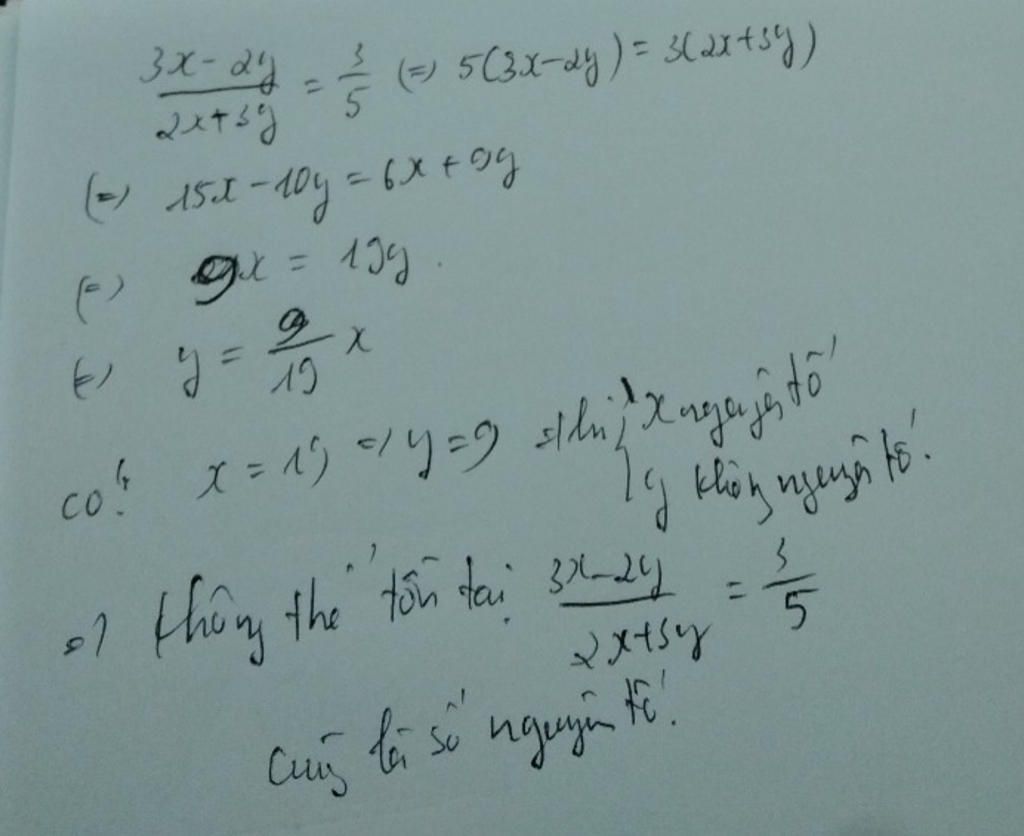 3x-2y / 2x+3y = 3/5 (=) 5(3x-2y) = 3(2x+3y)
(=) 15x-10y = 6x+9y
(=) 9x = 19y.
(=) y = 9/19 x
có: x = 19 => y = 9 thì { x nguyên tố
y không nguyên tố.
=> không thể tồn tại 3x-2y / 2x+3y = 3/5
cũng là số nguyên tố.